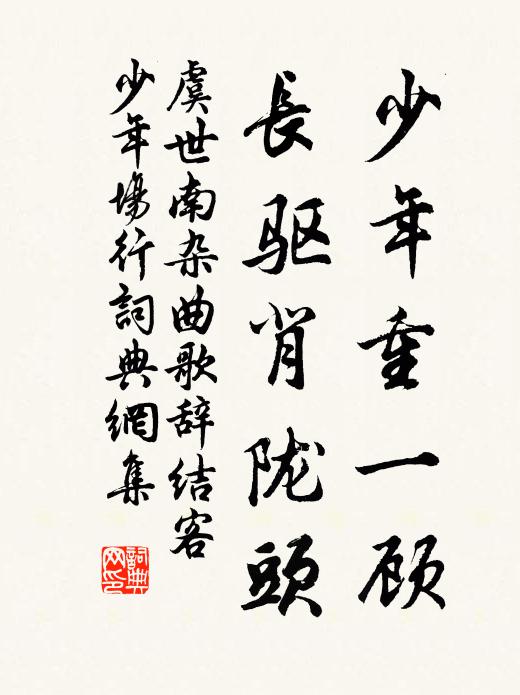 少年重一顾
長驱背陇頭
虞世南杂曲歌辞结客
少年場行詞典網集
詞典
网印